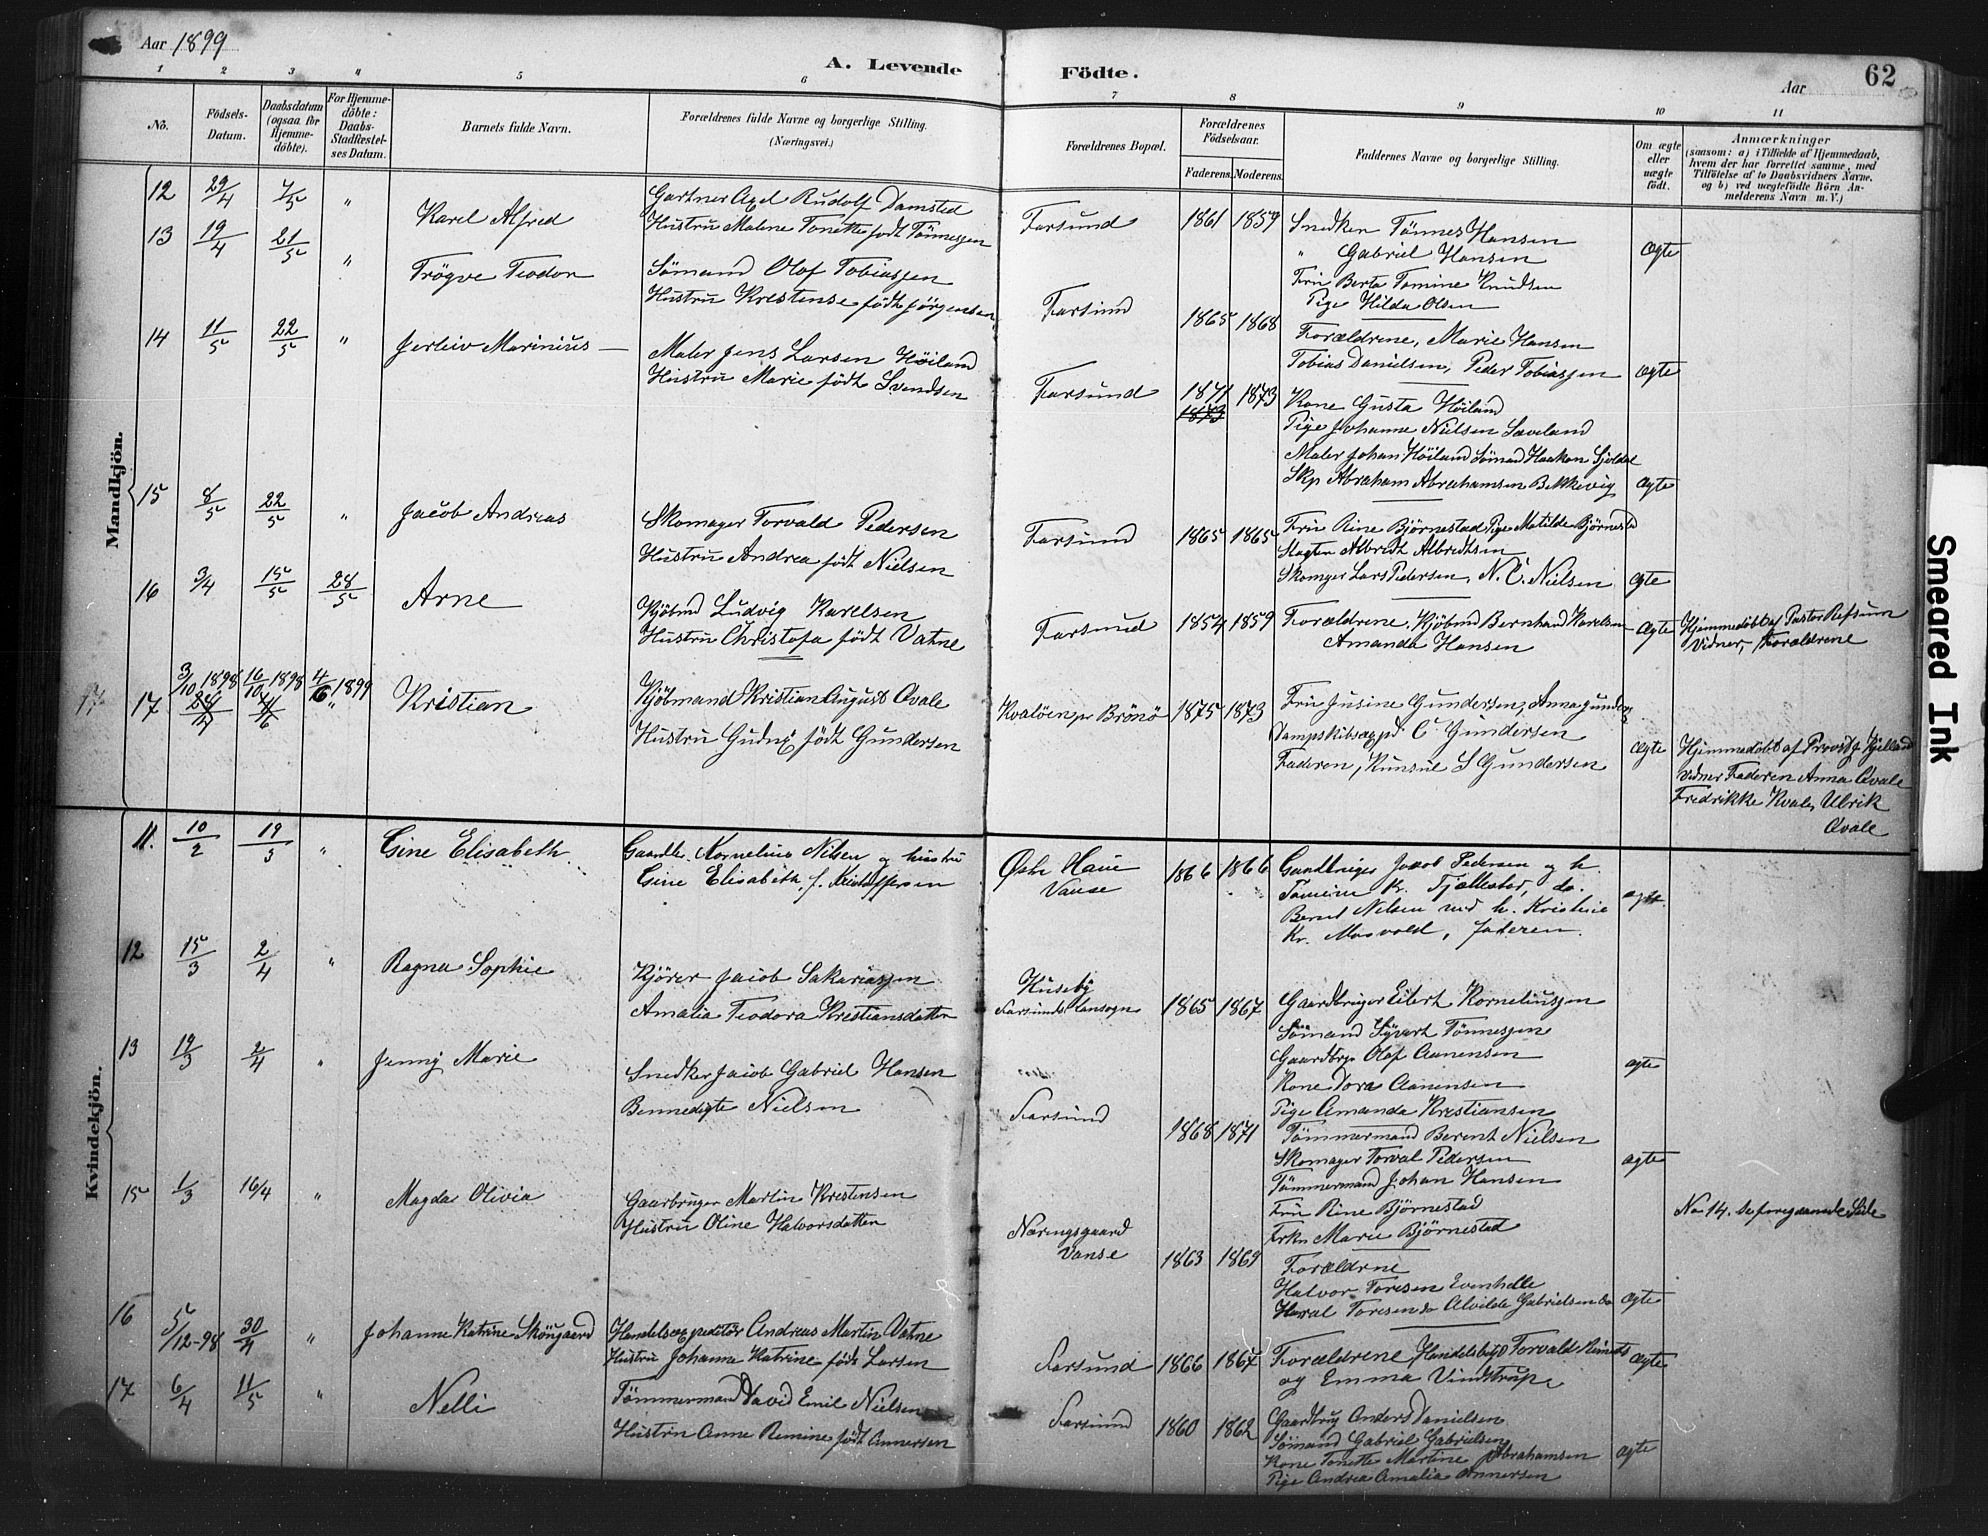 Aar 1899
A. Levende Födte.
Aar
62
1 2 3 4 5 6 7 8 9 10 11
No.
Födsels-Datum.
Daabsdatum (ogsaa for Hjemme-döbte).
For Hjemme-döbte: Daabs-Stadfæstel-ses Datum.
Barnets fulde Navn.
Forældrenes fulde Navne og borgerlige Stilling.
(Næringsvei.)
Forældrenes Bopæl.
Forældrenes Födselsaar.
Faderens. Moderens.
Faddernes Navne og borgerlige Stilling.
Om ægte eller uægte födt.
Anmærkninger
(saasom: a) i Tilfælde af Hjemmedaab, hvem der har forrettet samme, med Tilföielse af to Daabsvidners Navne, og b) ved uægtefödte Börn Anmelderens Navn m. V.)
Mandkjön.
12 29/4 7/5 " Karel Alfred
Gartner Axel Rudolf Damsted
Hustru Malene Tonette født Tönnessen
Farsund 1861 1859
Snedker Tönnes Hansen
" Gabriel Hansen
Fru Berta Tomine Knudsen
Pige Hilda Olsen
Ægte
13 19/4 21/5 " Trögve Teodor
Sömand Olaf Tobiassen
Hustru Krestense født Jörgensen
Farsund 1865 1868
Forældrene, Marie Hansen
Tobias Danielsen, Peder Tobiassen
Ægte
14 11/5 22/5 " Jerleiv Marinius
Maler Jens Larsen Höiland
Hustru Marie født Svendsen
Farsund 1871 1873 1873
Kone Gusta Höiland
Pige Johanne Nielsen Laveland
Maler Johan Höiland Sömand Haakon
Skp Abraham Abrahamsen Bekkevig
Ægte
15 8/5 22/5 " Jacob Andreas
Skomager Torvald Pedersen
Hustru Andrea født Nielsen
Farsund 1865 1865
Fru Rine Björnestad Pige Matilde Björnestd
Slagter Albridt Albridtsen
Skomger Lars Pedersen, N. C. Nielsen
Ægte
16 3/4 15/5 28/5 Arne
Kjöbmd Ludvig Karelsen
Hustru Christofa født Vatne
Farsund 1854 1859
Forældrene, Kjöbmd Bernhard Karelsen
Amanda Hansen
Ægte
Hjemmedöbt af Pastor Refsum
Vidner, Forældrene
17 3/10 1898 16/10 1898 4/6 1899 Kristian
Kjöbmand Kristian August Qvale
Hustru Gudny født Gundersen
Kvalöen pr Brönö 1875 1873
Fru Jusine Gundersen, Anna Gunders
Dampskibsexpd C Gundersen
Faderen, Kunsul S Gundersen
Ægte
Hjemmedöbt af Provst J Kjelland
Vidner Faderen Anna Qvale
Fredrikke Kvale, Ulrik
Qvale
Kvindekjön.
11. 10/2 19/3 " Gine Elisabeth.
Gaardbr. Kornelius Nilsen og hustru
Gine Elisabeth f. Kristoffersen
Østre Haue
Vanse
1866 1866
Gaardbruger Jacob Pedersen og h.
Tomine Kr. Tjællestad, do.
Bernt Nilsen med h. Kristine
Kr. Mosvold, faderen.
ægte.
12 15/3 2/4 " Ragna Sophie
Kjörer Jacob Sakariassen
Amalia Teodora Kristiansdatter
Huseby
Farsunds Lansogn
1865 1867
Gaardbruger Eilert Korneliussen
Sömand Syvert Tönnessen
Gaardbrger Olaf Aanensen
Kone Dora Aanensen
Pige Amanda Kristiansen
ægte
13 19/3 2/4 " Jenny Marie
Snedker Jacob Gabriel Hansen
Bennedigte Nielsen
Farsund 1868 1871
Tömmermand Berent Nielsen
Skomager Torval Pedersen
Tömmermand Johan Hansen
Fru Rine Björnestad
Frkn Marie Björnestad
ægte
15 1/3 16/4 " Magda Olivia
Gaarbruger Martin Kristensen
Hustru Oline Halvorsdatter
Næringsgaard
Vanse
1863 1869
Forældrene
Halvor Toresen Evenhelle
Haral Toresen do Alvilde Gabrielsen do
Ægte
No 14. se foregaaende Side
16 5/12-98 30/4 " Johanne Katrine Sköngaard
Handelsexpeditör Andreas Martin Vatne
Hustru Johanne Katrine født Larsen
Farsund 1866 1867
Forældrene, Handelsbetj Torvald
og Emma Vindstrup
Ægte
17 6/4 11/5 " Nelli
Tömmermand David Emil Nielsen
Hustru Anne Remine født Annersen
Farsund 1860 1862
Gaardbrug Anders Danielsen
Sömand Gabriel Gabrielsen
Kone Tonette Martine Abrahamsen
Pige Andrea Amalia Annersen
ægte
Smeared Ink